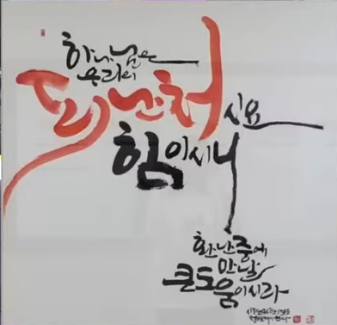 하나님은
우리의
피난처시요
힘이시니
환난 중에
만날
큰 도움이시라